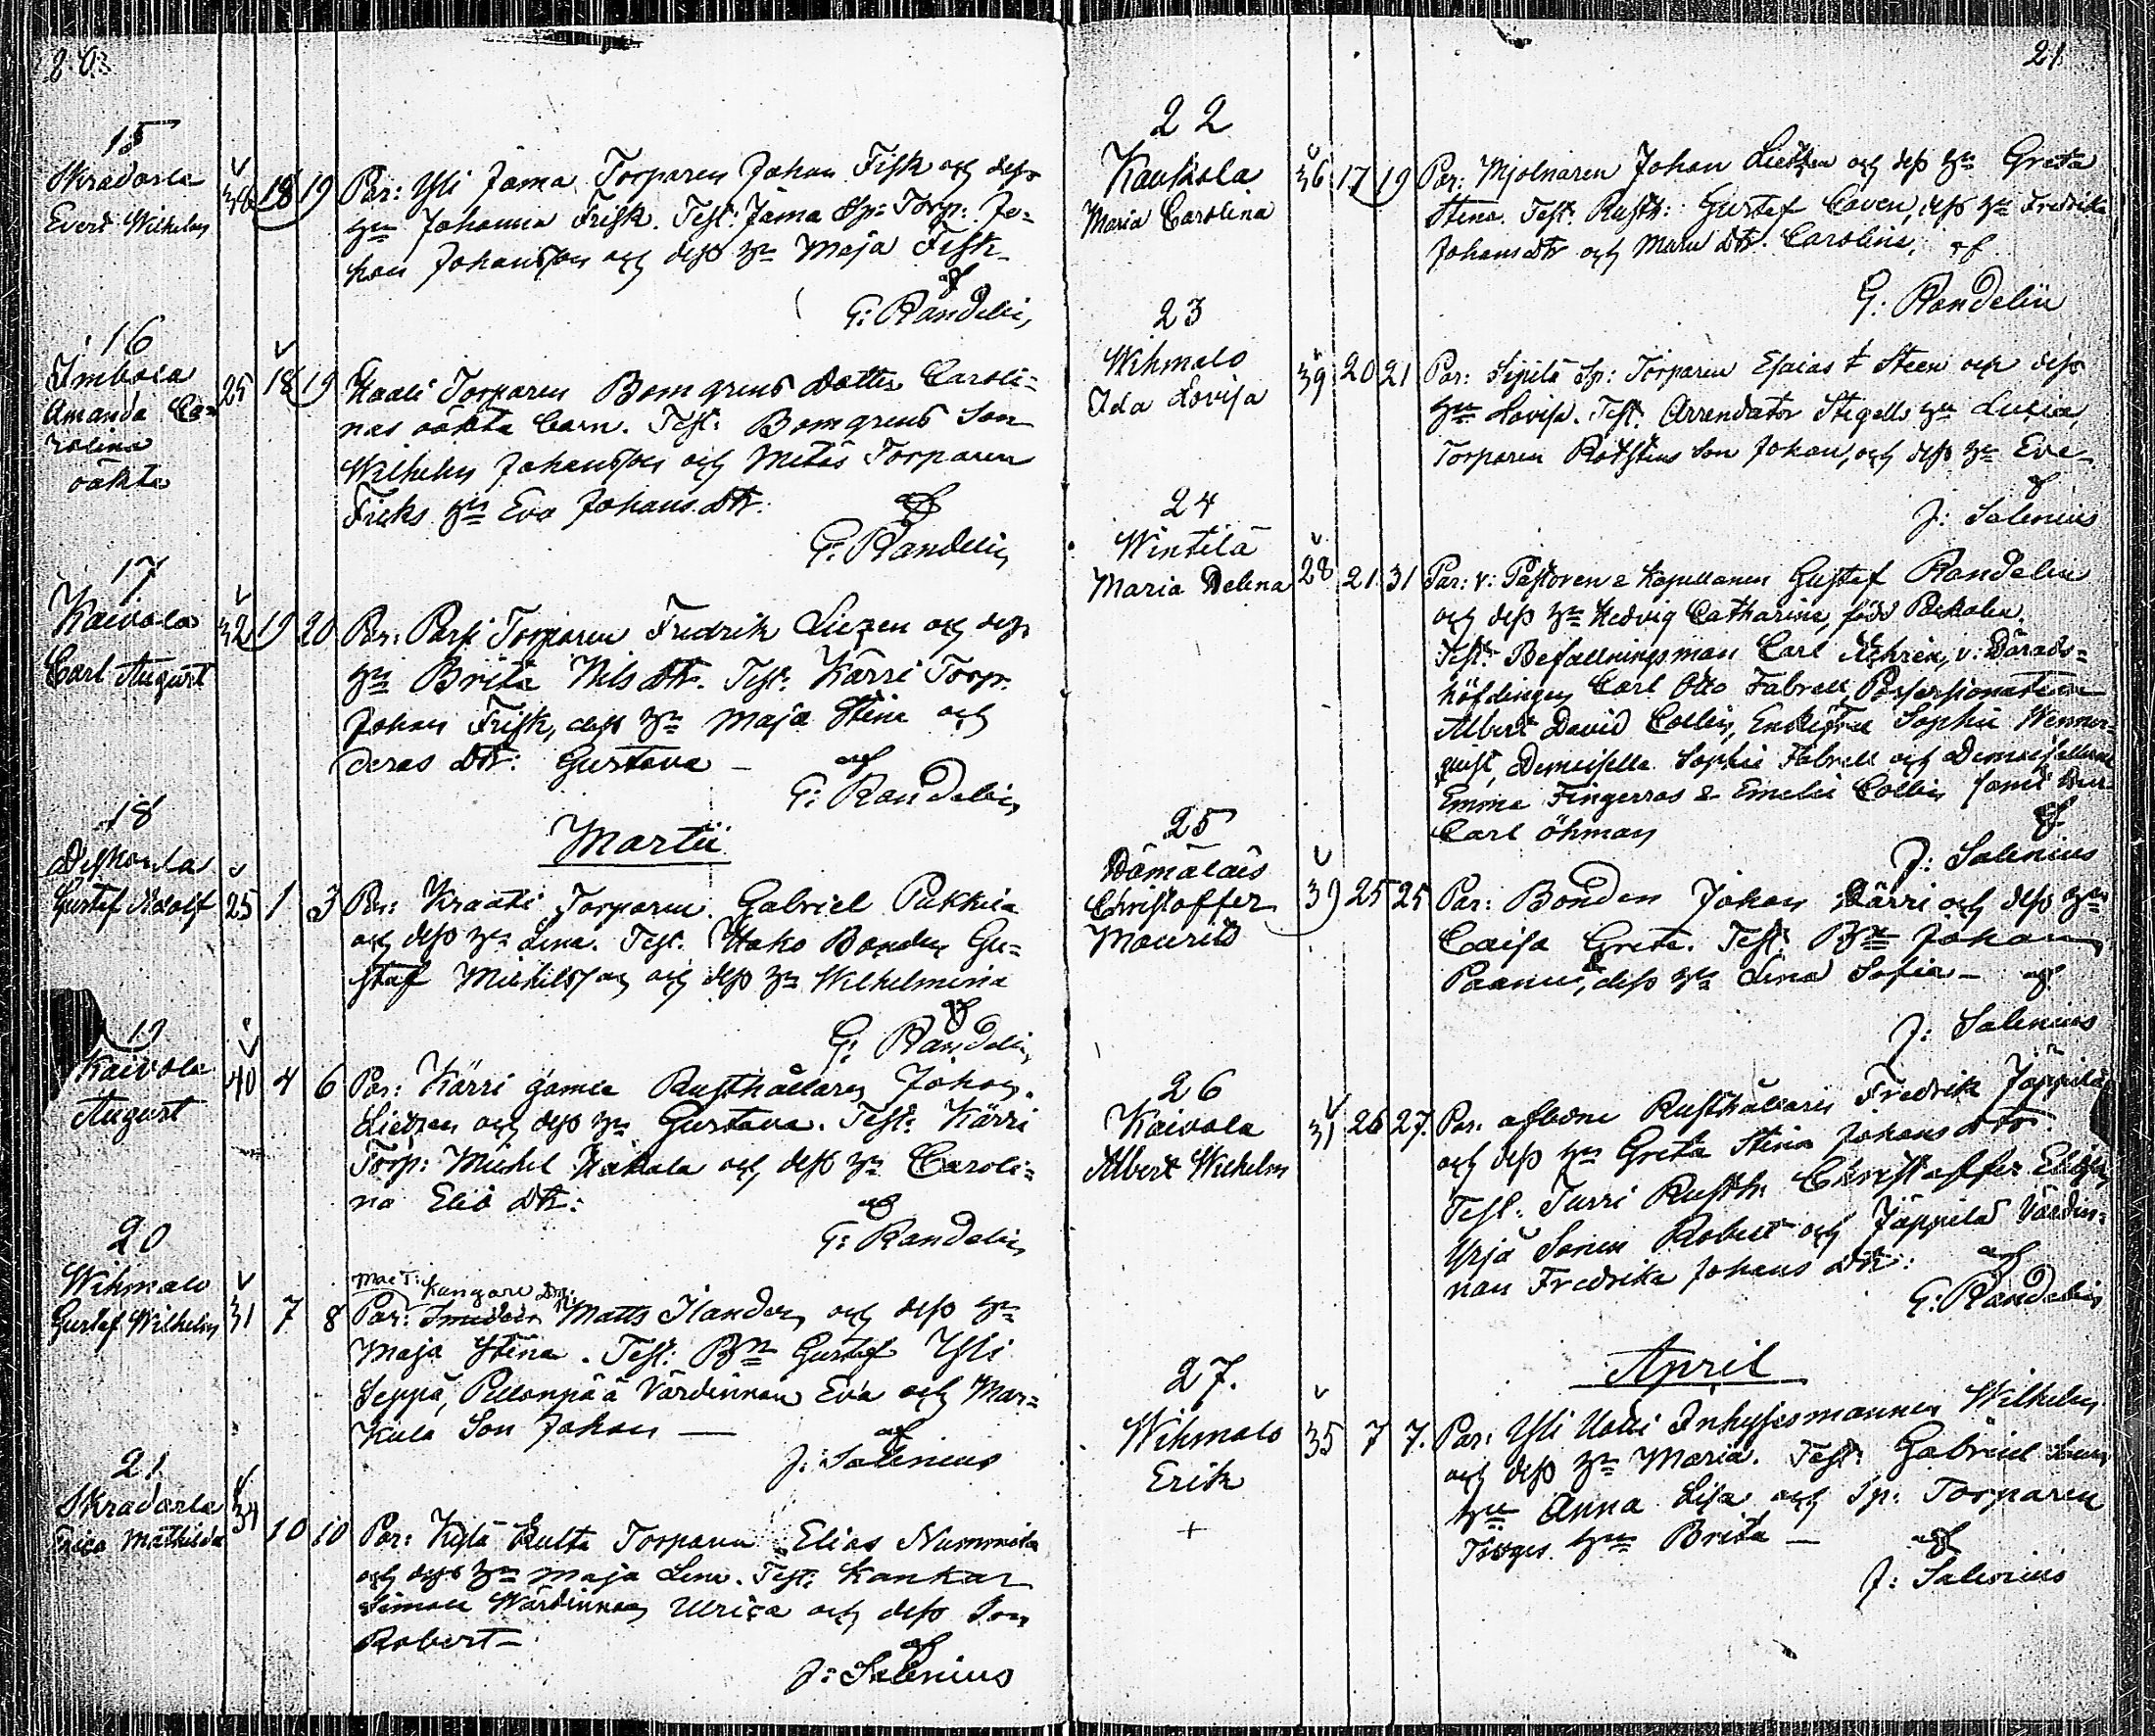 20
15
Skradarla
Evert Wilhelm
38 18 19
Par: Yli Jama Torparen Johan Fisk och dess
hu Johanna Frisk. Test: Jama Sp: Torp: Jo=
han Johansson och dess hu Maja Fisk
af
G: Randelin
16
Amanda Ca=
rolina
oäkta
25 18 19
Torparen Bomgrens dotter Caroli=
nas oäkta barn. Test: Bomgrens Son
Wilhelm Johansson och Torparen
hu Eva Johans dtr.
af
G: Randelin
17
Kaivola
Carl August
32 19 20
Par: Torparen Fredrik Liezen och dess
hu Brita Nils dtr. Test: Kärri Torp.
Johan Frisk, dess hu Maja Stina och
deras dtr: Gustava —
af
G: Randelin
Martii
18
Gustaf Adolf
25 1 3
Par: Kraati Torparen Gabriel Pukkila
och dess hu Lena. Test. Hako Bonden Gu=
staf Michelsson och dess hu Wilhelmina
af
G: Randelin
19
Kaivola
August
40 4 6
Par: Kärri gamle Rusthållaren Johan
Liezen och dess hu Gustava. Test: Kärri
Torp: Michel Hakala och dess hu Caroli=
na Elia dtr:
af
G: Randelin
20
Wihmalo
Gustaf Wilhelm
31 7 8
Kangare
Par: Matts Ilander och dess hu
Maja Stina. Test: Bn Gustaf Yli
Seppä, Pellonpää Värdinnan Eva och Mar=
kula Son Johan —
af
J: Salenius
21
Skradarla
Mathilda
34 10 10
Par: Torparen Elias Nummila
och dess hu Maja Lena. Test: Kankar
Simola Wärdinnan Ulrica och dess Son
Robert —
af
J: Salenius
21
22
Kaukola
Maria Carolina
36 17 19
Par: Mjolnaren Johan Liezen och dess hu Greta
Stena. Test: Rusth: Gustaf Caven, dess hu Fredrika
Johans dtr och dtr. Carolina, af
G. Randelin
23
Wihmalo
Ida Lovisa
39 20 21
Par: Sipilä Sp: Torparen Esaias Steen och dess
hu Lovisa. Test. Arrendator Stigells hu Lucia,
Torparen Rotstens Son Johan, och dess hu Eva
af
J: Salenius
24
Wintilä
Maria Delena
28 21 31
Par: v: Pastoren & Kapellanen Gustaf Randelin
och dess hu Hedvig Catharina, född
Test: Befallningsman Carl v: Härads=
höfdingen Carl Otto Fabrell,
Albert David Collin, Enkefru Sophie Wenner=
quist, Demoiselle Sophie Fabrell och Demoisellerna
Emma Fingerroos & Emelie Collin samt
Carl Öhman
af
J: Salenius
25
Christoffer
Maurits
39 25 25
Par: Bonden Johan Kärri och dess hu
Caisa Greta. Test: Bn Johan
dess hu Lena Sofia — af
J: Salenius
26
Kaivola
Albert Wilhelm
31 26 27.
Par: Rusthållaren Fredrik Jäppilä
och dess hu Greta Stina Johans dtr.
Test: Turri Rusth: Christoffer
Yrjä Sonen Robert och Jäppilä Värdin=
nan Fredrika Johans dtr:
af
G: Randelin
April
27.
Wihmalo
Erik
+
35 7 7.
Par: Yli Inhysesmannen Wilhelm
och dess hu Maria. Test: Gabriel
hu Anna Lisa och Sp: Torparen
hu Brita —
af
J: Salenius